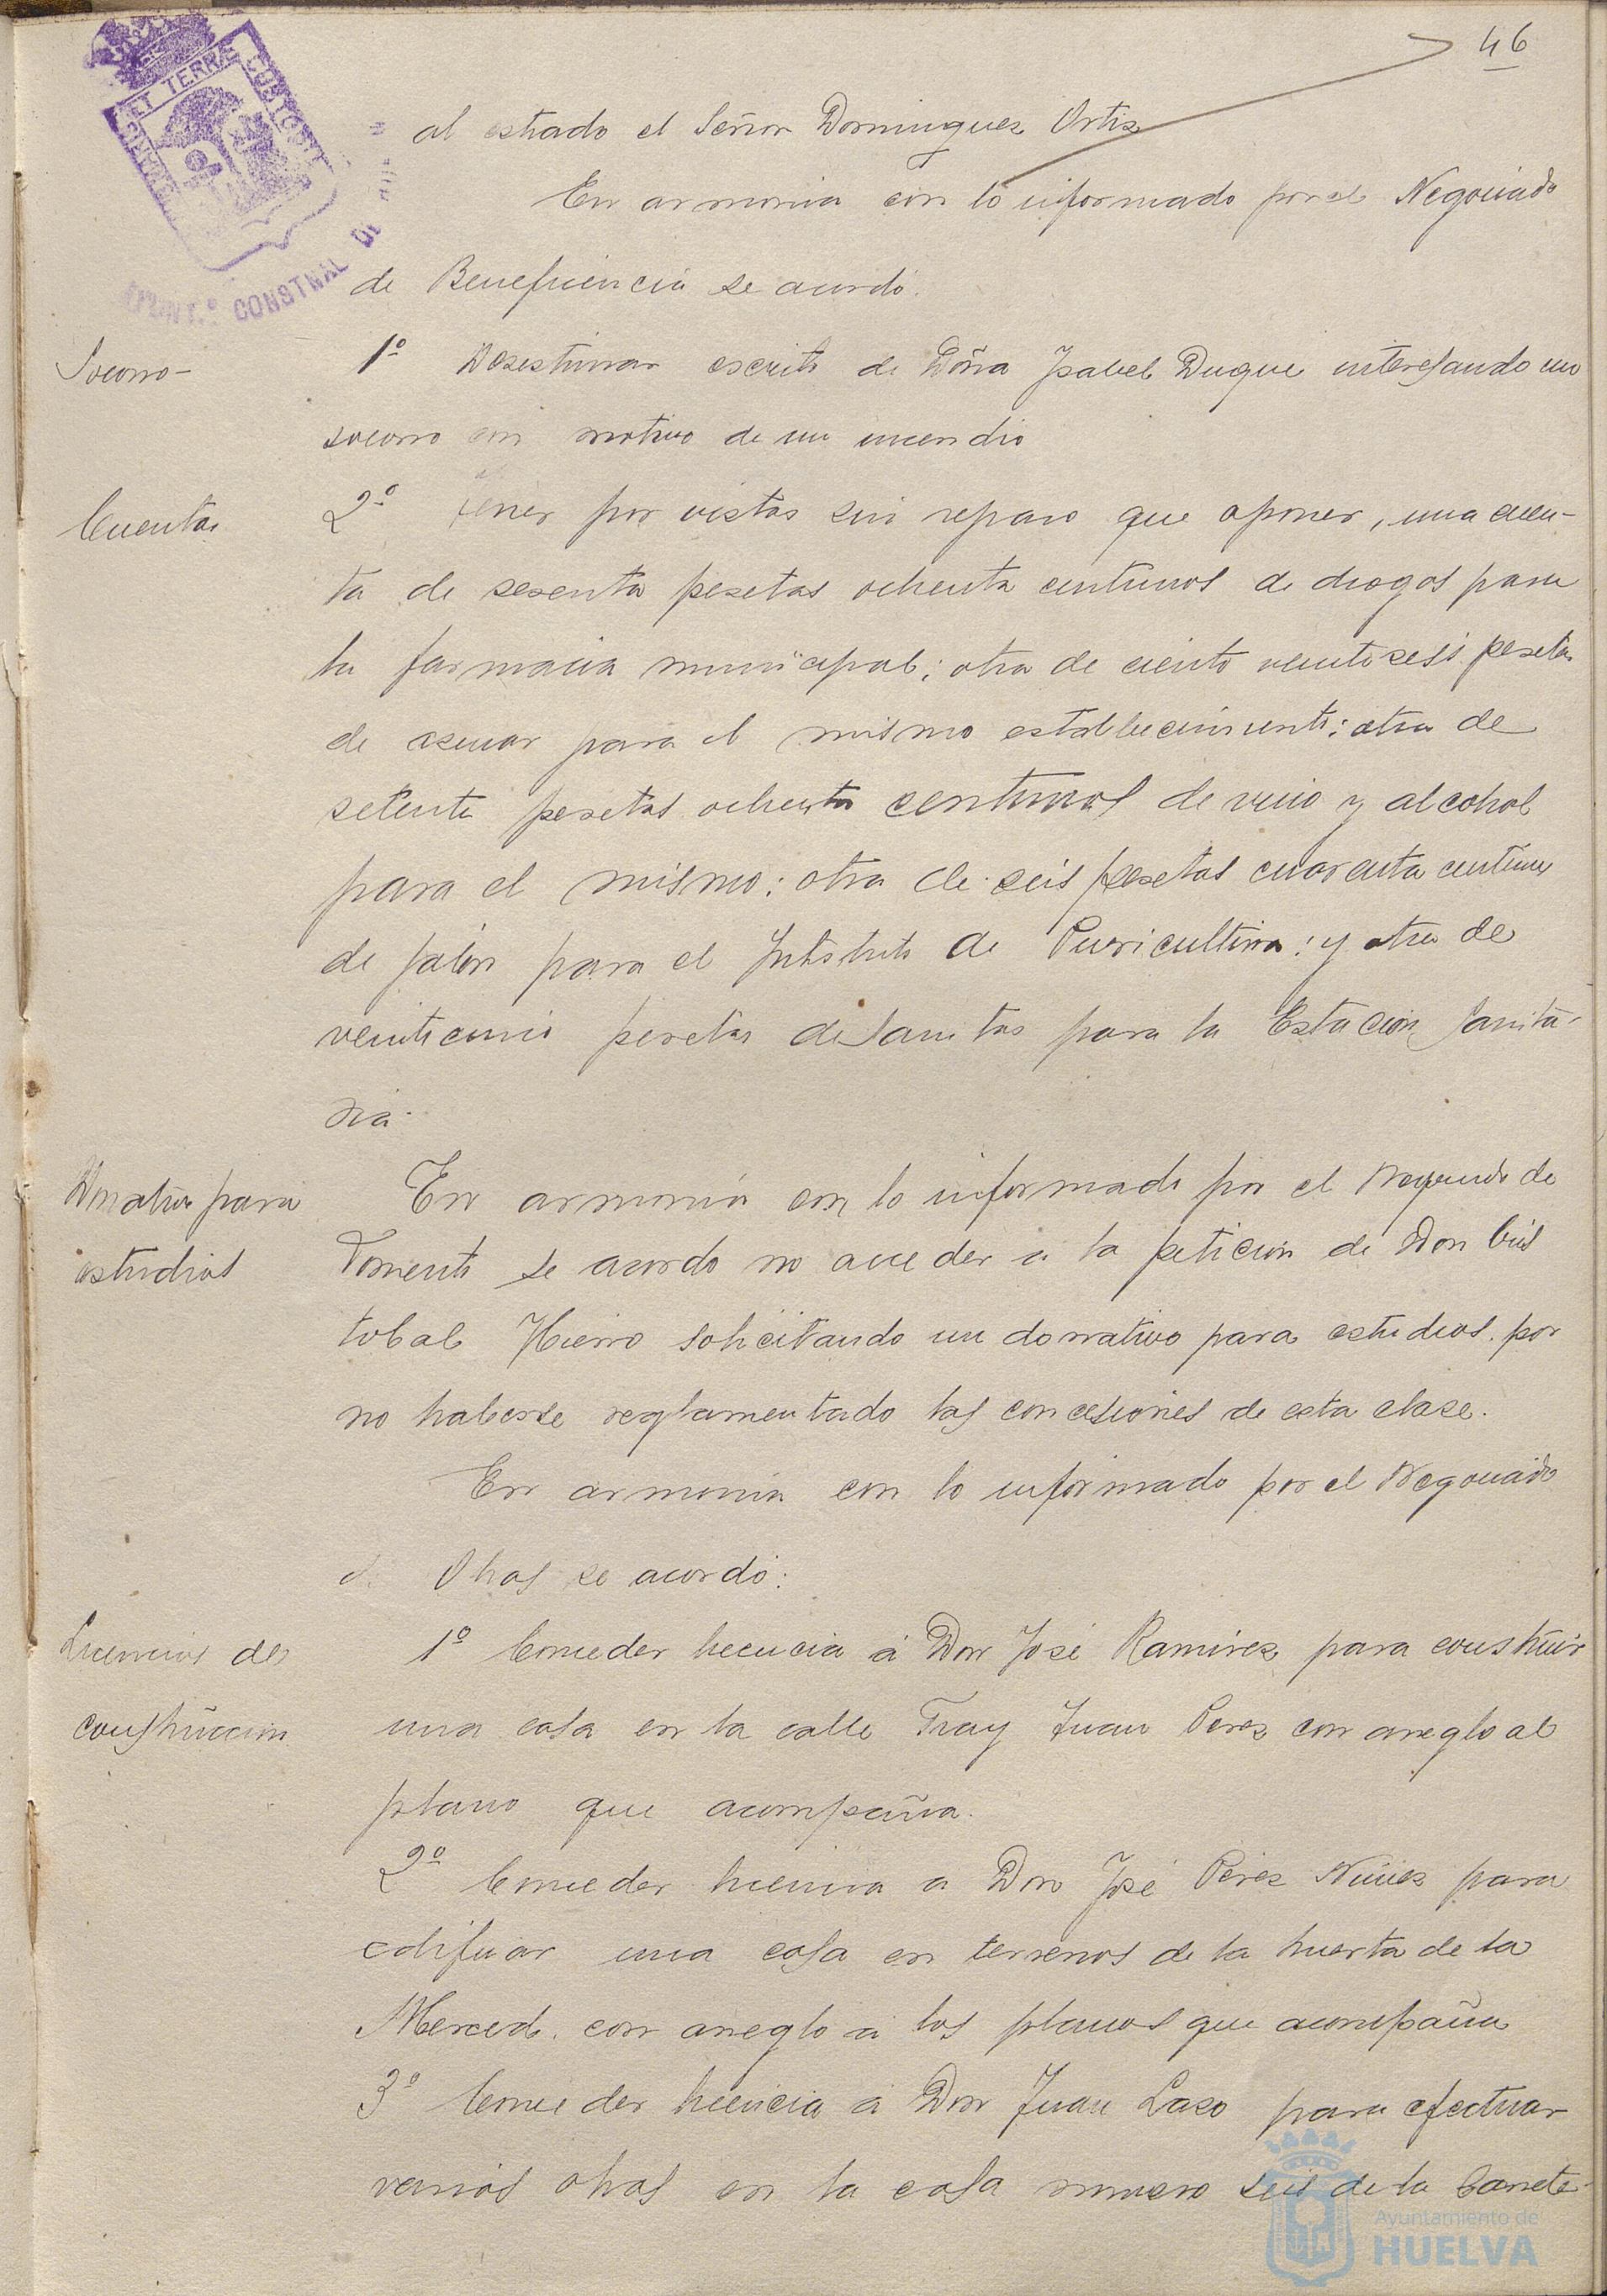 46
PORTUS MARIS ET TERRÆ CUSTODIA
AYUNT.º CONSTNAL DE
al estrado el Señor Dominguez Ortiz
En armonia con lo informado por el Negociado
de Beneficencia se acordó.
Socorro-
1º Desestimar escrito de Doña Isabel Duque interesando un
socorro con motivo de un incendio
Cuentas
2º tener por vistas sin reparo que oponer, una cuen-
ta de sesenta pesetas ochenta centimos de drogas para
la farmacia municipal; otra de ciento veintiseis pesetas
de azucar para el mismo establecimiento: otra de
setenta pesetas ochenta centimos de vino y alcohol
para el mismo: otra de seis pesetas cuarenta centimos
de jabón para el Instituto de Puericultura: y otra de
veinticinco pesetas de Sanitas para la Estación Sanita-
ria.
Donativo para
estudios
En armonia con lo informado por el Negociado de
Fomento se acordo no acceder a la petición de Don Cris
tobal Hierro solicitando un donativo para estudios. por
no haberse reglamentado las concesiones de esta clase.
En armonia con lo informado por el Negociado
de Obras se acordó:
Licencias de
construccion
1º Conceder licencia á Don José Ramirez para construir
una casa en la calle Fray Juan Perez con arreglo al
plano que acompaña.
2º Conceder licencia a Don José Pérez Nuñez para
edificar una casa en terrenos de la huerta de la
Merced. con arreglo a los planos que acompaña
3º Conceder licencia á Don Juan Lazo para efectuar
varias obras en la casa numero seis de la Carrete-
Ayuntamiento de
HUELVA